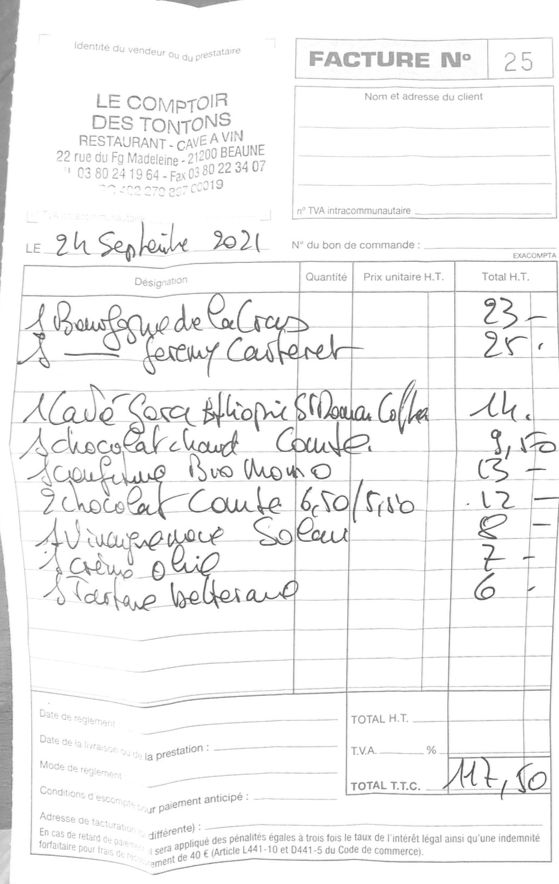 Identité du vendeur ou du prestataire
LE COMPTOIR
DES TONTONS
RESTAURANT - CAVE A VIN
22 rue du Fg Madeleine - 21200 BEAUNE
03 80 24 19 64 - Fax 03 80 22 34 07
00019
n° TVA intracommunautaire
FACTURE N° 25
Nom et adresse du client
n° TVA intracommunautaire
LE 24 Septembre 2021
N° du bon de commande :
EXACOMPTA
Désignation Quantité Prix unitaire H.T. Total H.T.
1 Bourgogne de 23 -
1 — Jeremy 25 -
1 Café Ethiopie 14.
1 chocolat chaud Comte. 9,50
1 Bio Momo 13 -
2 chocolat Comte 6,50/5,50 12 -
1 Solau 8 -
1 crème olive 7 -
1 6 -
Date de règlement
Date de la livraison ou de la prestation :
Mode de règlement
Conditions d'escompte pour paiement anticipé :
Adresse de facturation différente) :
TOTAL H.T.
T.V.A. %
TOTAL T.T.C. 117,50
En cas de retard de paiement sera appliqué des pénalités égales à trois fois le taux de l'intérêt légal ainsi qu'une indemnité
forfaitaire pour frais de recouvrement de 40 € (Article L441-10 et D441-5 du Code de commerce).